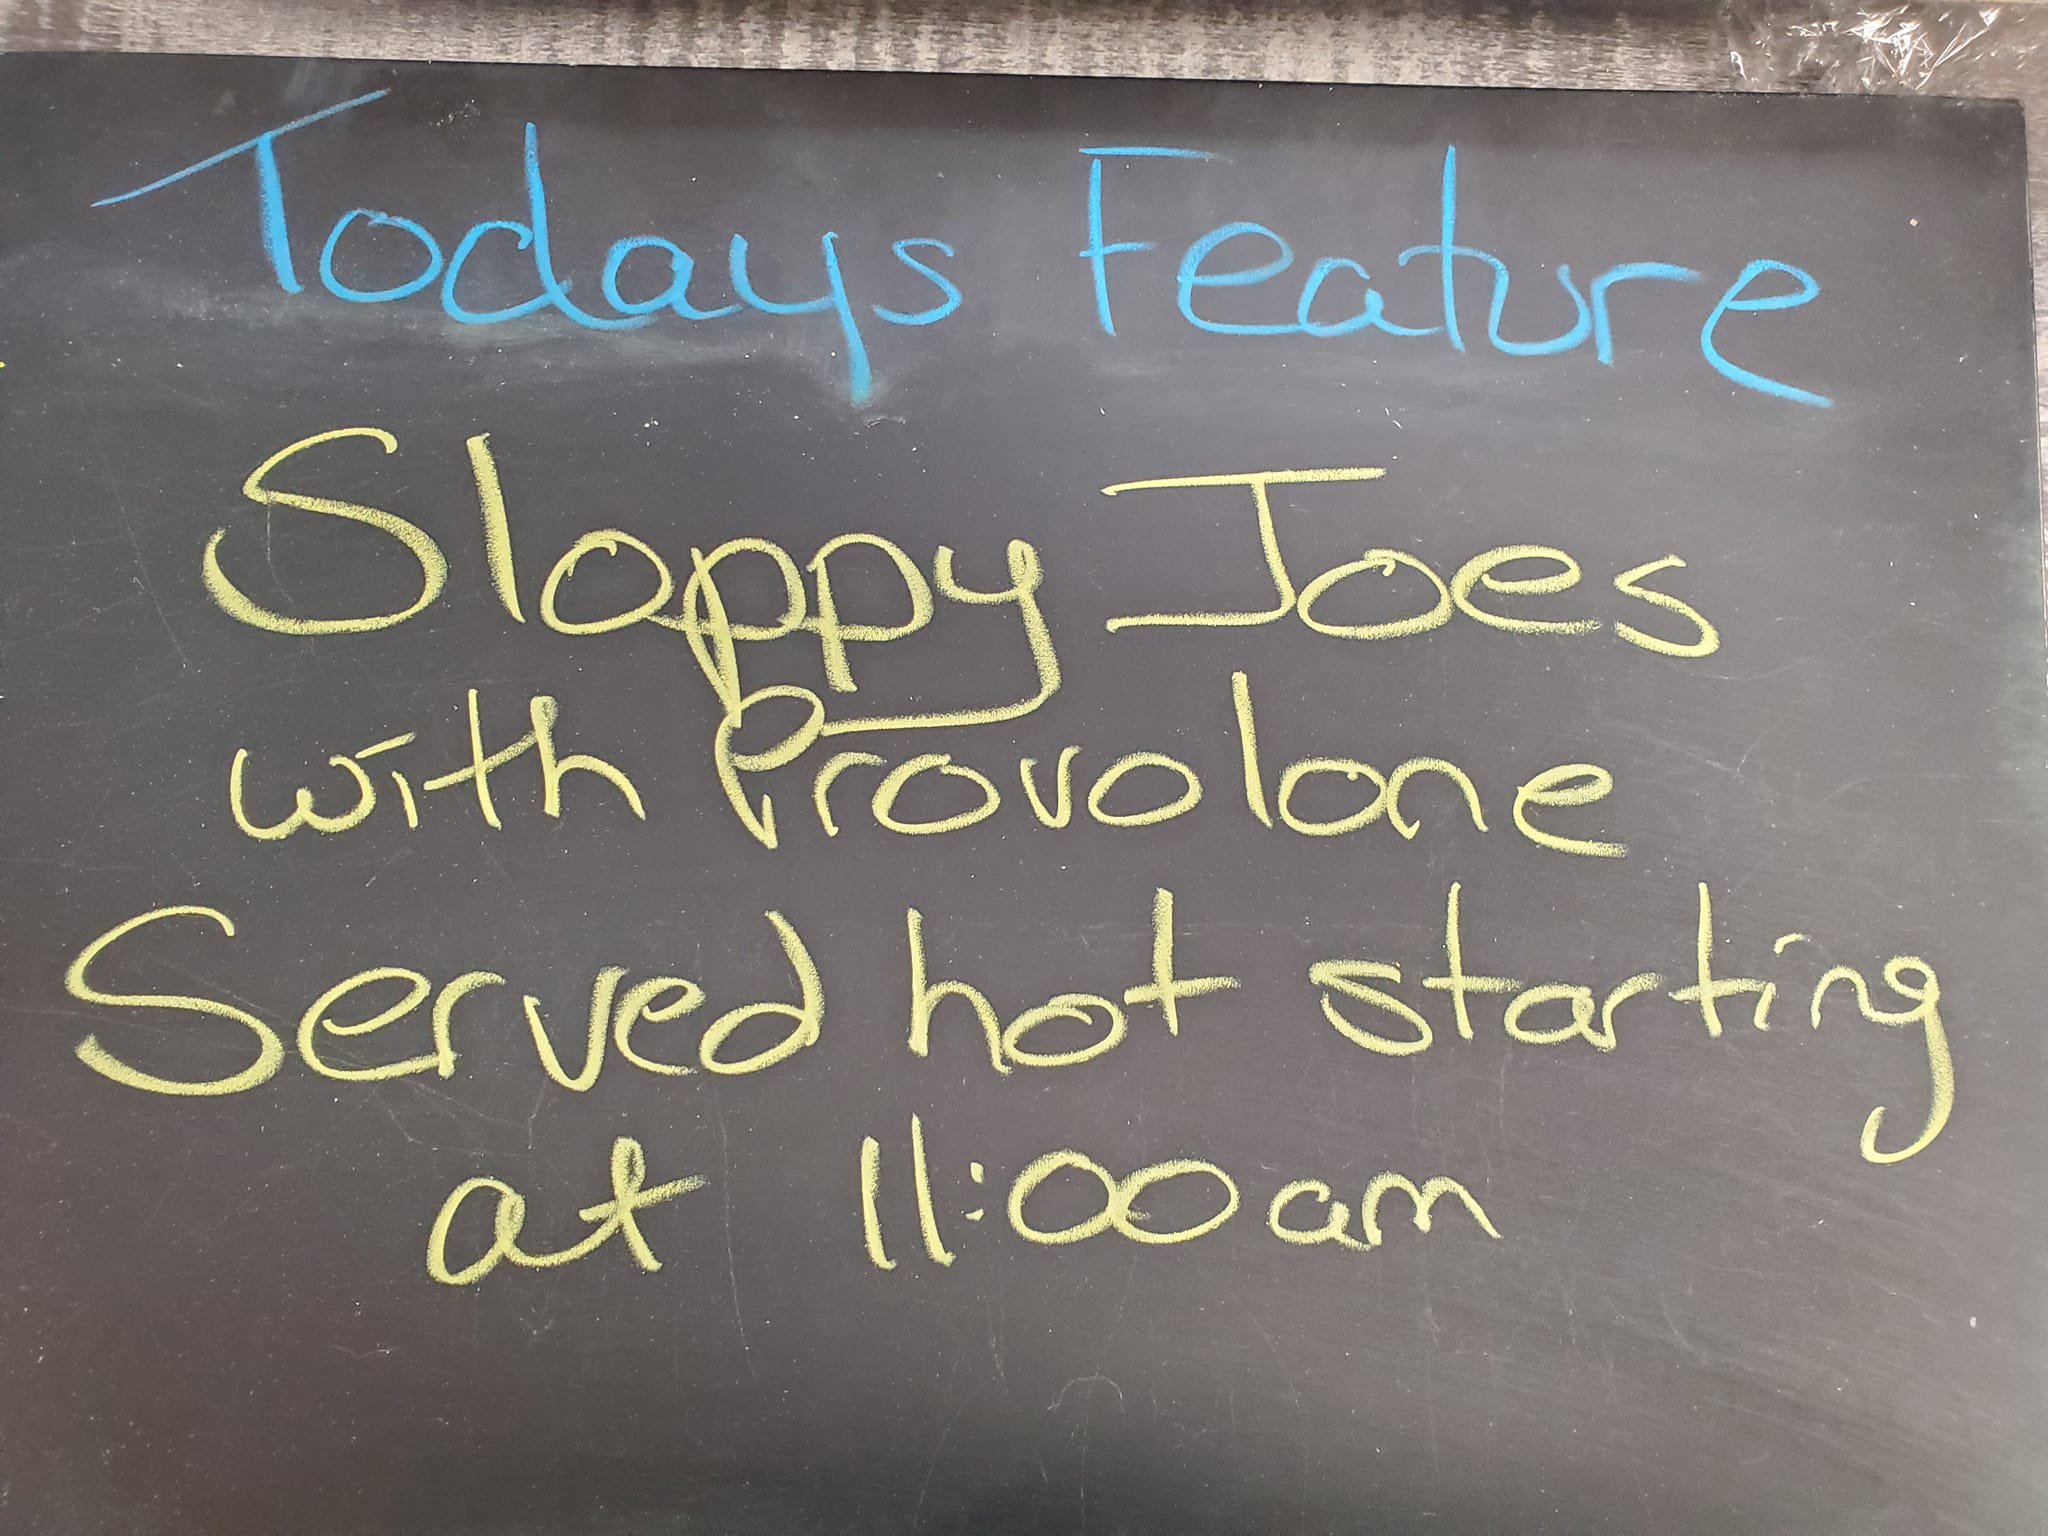 Todays Feature
Sloppy Joes
with Provolone
Served hot starting
at 11:00am